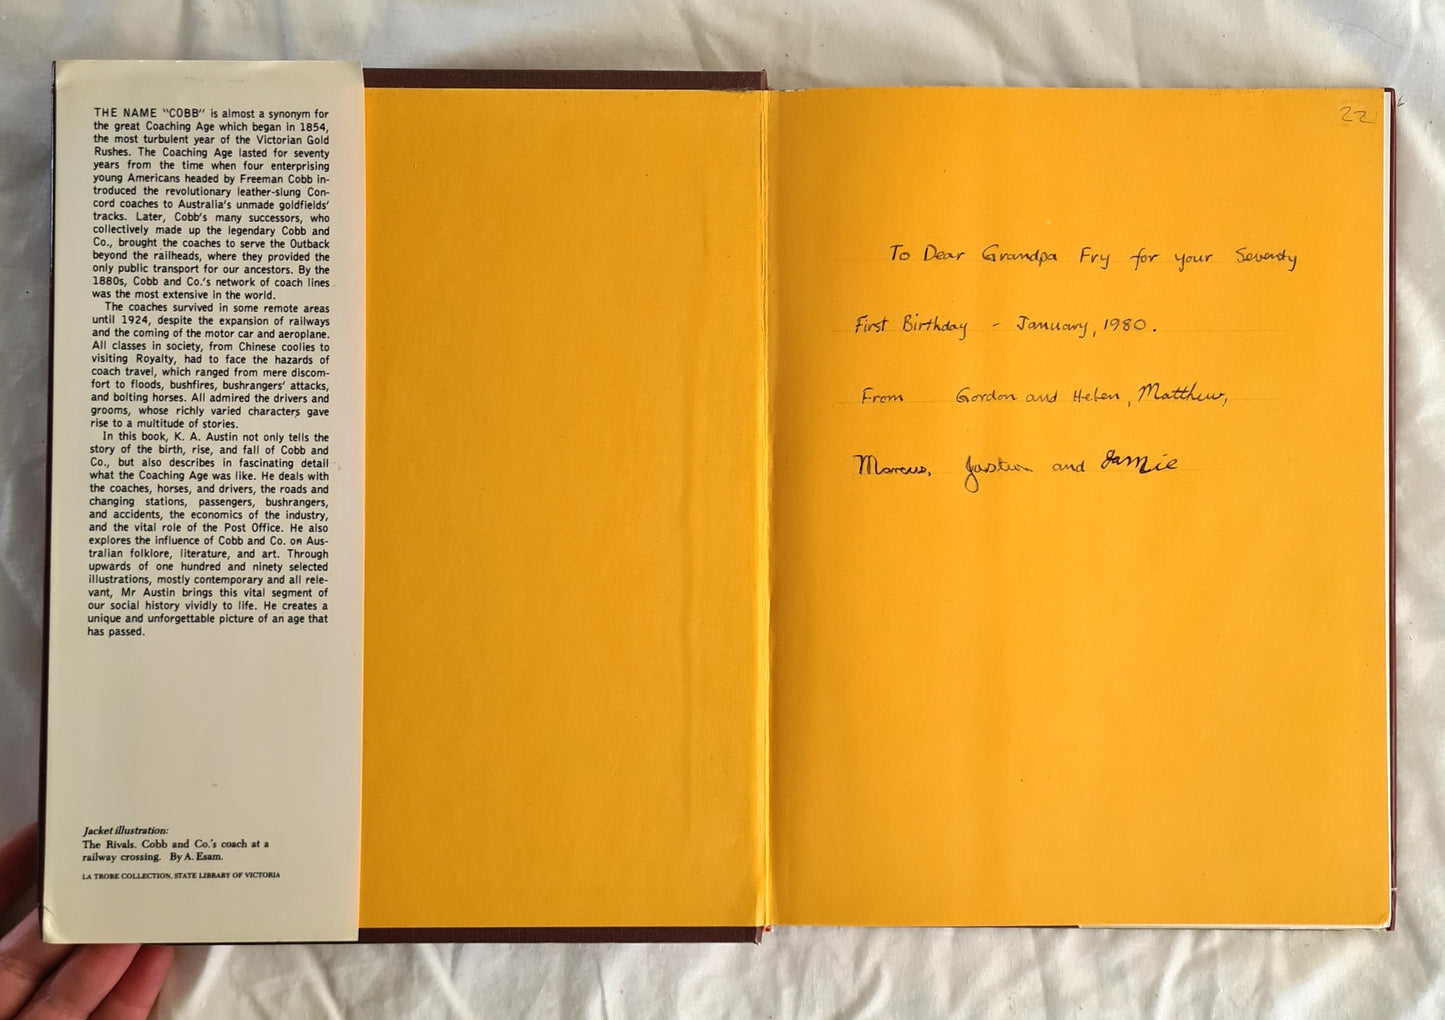 THE NAME "COBB" is almost a synonym for
the great Coaching Age which began in 1854,
the most turbulent year of the Victorian Gold
Rushes. The Coaching Age lasted for seventy
years from the time when four enterprising
young Americans headed by Freeman Cobb in-
troduced the revolutionary leather-slung Con-
cord coaches to Australia's unmade goldfields'
tracks. Later, Cobb's many successors, who
collectively made up the legendary Cobb and
Co., brought the coaches to serve the Outback
beyond the railheads, where they provided the
only public transport for our ancestors. By the
1880s, Cobb and Co.'s network of coach lines
was the most extensive in the world.
The coaches survived in some remote areas
until 1924, despite the expansion of railways
and the coming of the motor car and aeroplane.
All classes in society, from Chinese coolies to
visiting Royalty, had to face the hazards of
coach travel, which ranged from mere discom-
fort to floods, bushfires, bushrangers' attacks,
and bolting horses. All admired the drivers and
grooms, whose richly varied characters gave
rise to a multitude of stories.
In this book, K. A. Austin not only tells the
story of the birth, rise, and fall of Cobb and
Co., but also describes in fascinating detail
what the Coaching Age was like. He deals with
the coaches, horses, and drivers, the roads and
changing stations, passengers, bushrangers,
and accidents, the economics of the industry,
and the vital role of the Post Office. He also
explores the influence of Cobb and Co. on Aus-
tralian folklore, literature, and art. Through
upwards of one hundred and ninety selected
illustrations, mostly contemporary and all rele-
vant, Mr Austin brings this vital segment of
our social history vividly to life. He creates a
unique and unforgettable picture of an age that
has passed.
Jacket illustration:
The Rivals. Cobb and Co.'s coach at a
railway crossing. By A. Esam.
LA TROBE COLLECTION, STATE LIBRARY OF VICTORIA
22
To Dear Grandpa Fry for your Seventy
First Birthday - January, 1980.
From Gordon and Helen, Matthew,
Marcus, Justin and Jamie